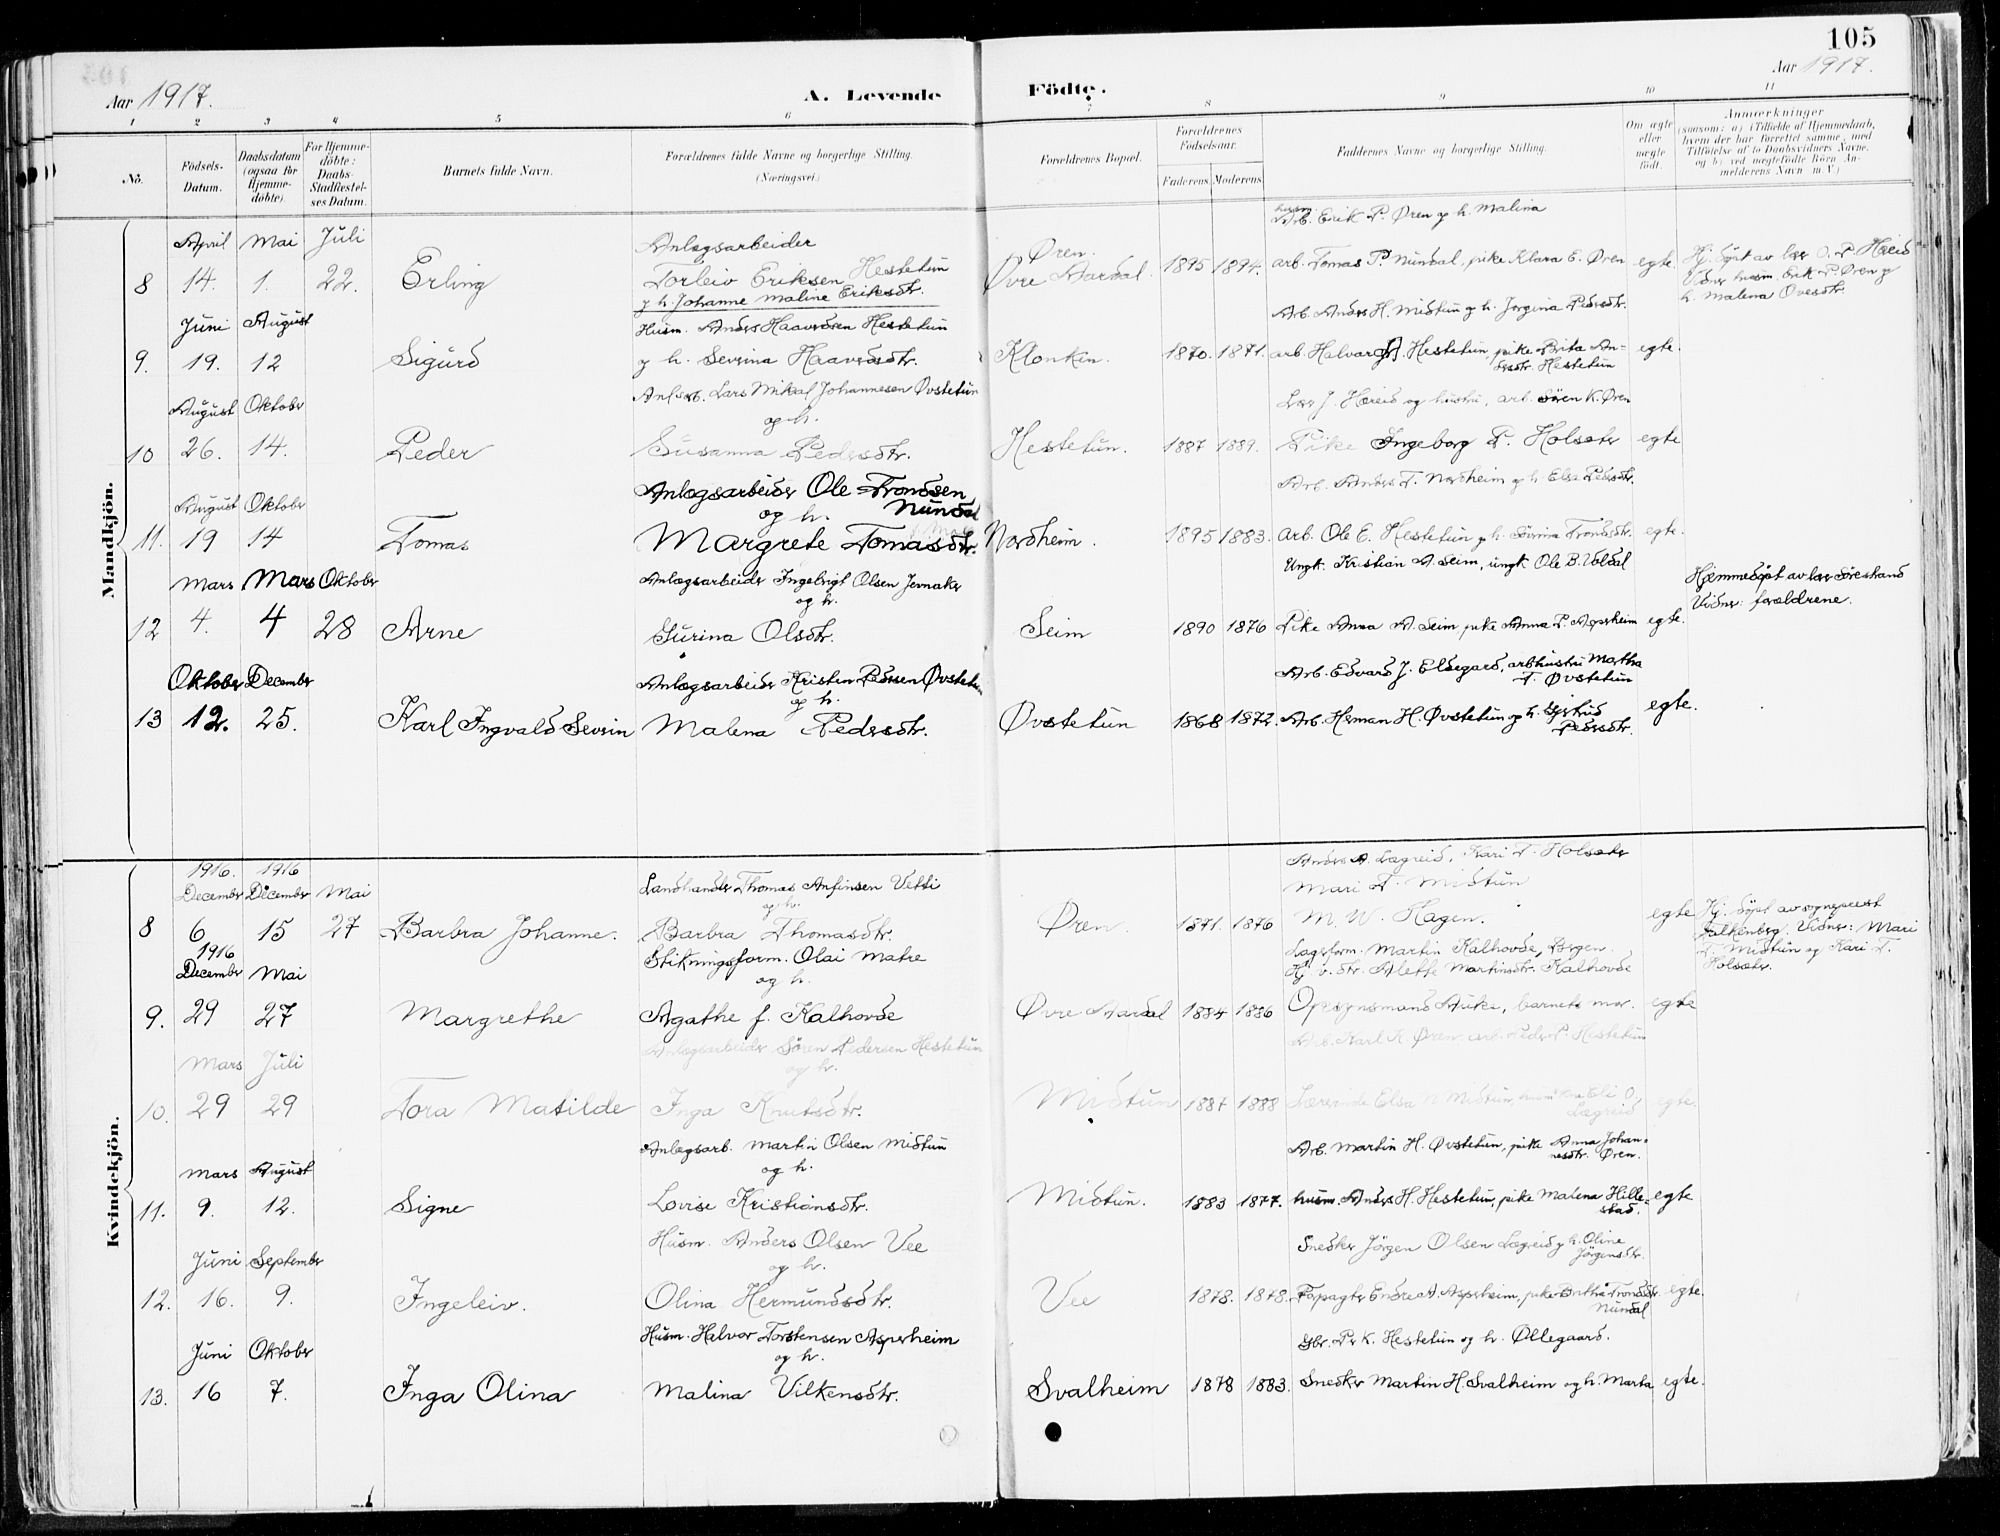 105
Aar 1917.
A. Levende
Födte.
Aar 1917.
1 2 3 4 5 6 7 8 9 10 11
No.
Födsels-Datum.
Daabsdatum (ogsaa for Hjemme-döbte).
For Hjemme-döbte: Daabs-Stadfæstel-ses Datum.
Barnets fulde Navn.
Forældrenes fulde Navne og borgerlige Stilling. (Næringsvei.)
Forældrenes Bopæl.
Forældrenes Födselsaar.
Faderens. Moderens.
Faddernes Navne og borgerlige Stilling.
Om ægte eller uægte födt.
Anmærkninger
(saasom: a) i Tilfælde af Hjemmedaab, hvem der har forrettet samme, med Tilföielse af to Daabsvidners Navne, og b) ved uægtefödte Börn Anmelderens Navn m. V.)
Mandkjön.
April Mai Juli
8 14. 1. 22. Erling
Anlægsarbeider
Torleiv Eriksen Hestetun
og h. Johanne Maline Eriksdtr.
Øren.
Øvre Aardal. 1895 1894.
husm.
Arb. Erik P. Øren og h. Malina
arb. Tomas P. Nundal, pike Klara E. Øren egte.
Hj. døpt av lær O. P. Hæreid
Vidner husm Erik P. Øren og
h. Malena Ovesdtr.
Juni August
9. 19. 12 Sigurd
Husm. Anders Haavardsen Hestetun
og h. Severina Haavardsdtr.
Klonken. 1870. 1871.
Arb. Anders H. Midtun og h. Jorgina Pedersdtr.
arb. Halvard A. Hestetun, pike Brita An-
dersdtr. Hestetun egte.
August Oktober
10 26. 14. Peder
Anl. arb. Lars Mikal Johannesen Øvstetun
og h.
Susanna Pedersdtr.
Hestetun. 1887 1889.
Lær J. Hæreid og hustru, arb. Søren K. Øren
Pike Ingeborg P. Holsæter egte
August Oktober
11. 19 14 Tomas
Anlægsarbeider Ole Trondsen
Nundal
og h.
Margrete Tomasdtr.
Nordheim. 1895 1883.
Arb. Anders T. Nordheim og h. Elsa Pedersdtr.
arb. Ole E. Hestetun og h. Severina Trondsdtr. egte.
Mars Mars Oktober
12 4. 4 28 Arne
Anlægsarbeider Ingebrigt Olsen Jevnaker
og h.
Gurina Olsdtr.
Seim 1890 1876
Ungk. Kristian A. Seim, ungk. Ole B. Voldal
Pike Anna A. Seim, pike Anna P. Asperheim egte.
Hjemmedøpt av lær Sørestrand
Vidner: forældrene.
Oktober December
13 12. 25. Karl Ingvald Severin
Anlægsarbeider Kristen Pedersen Øvstetun
og h.
Malena Pedersdtr.
Øvstetun 1868 1872.
Arb. Edvard J. Eldegard, arb. hustru Martha
T. Øvstetun
Arb. Herman H. Øvstetun og h. Gjertrud
Pedersdtr. egte.
Kvindekjön.
1916. 1916
December December Mai
8 6 15 27 Barbra Johanne.
Landhandler Thomas Anfinsen Vetti
og h.
Barbra Thomasdtr.
Øren. 1871. 1876
Anders A. Lægreid, Kari T. Holsæter
Mari T. Midtun
M. W. Hagen. egte
Hj. døpt av sogneprest
Falkenberg. Vidner: Mari
T. Midtun og Kari T.
Holsæter.
1916
December Mai
9. 29 27 Margrethe
Stikningsform. Olai Matre
og h.
Agathe f. Kalhovde
Øvre Aardal 1884 1886
Lagerform. Martin Kalhovde, Bergen.
Hj. v. dtr. Alette Martinsdtr. Kalhovde
Opsynsmand Auke, barnets mor. egte
Mars Juli
10. 29 29 Tora Matilde
Anlægsarbeider Søren Pedersen Hestetun
og h.
Inga Knutsdtr.
Midtun 1887 1888
Arb. Karl K. Øren, arb. Peder P. Hestetun
Lærerinde Elsa N. Midtun, Eli O.
Lægreid egte.
Mars August
11. 9. 12. Signe
Anlægsarb. Martin Olsen Midtun
og h.
Lovise Kristiansdtr.
Midtun. 1883 1877.
Arb. Martin H. Øvstetun, pike Anna Johan-
nesdtr. Øren.
husm. Anders H. Hestetun, pike Malena Hille-
stad. egte
Juni September
12. 16. 9. Ingeleiv.
Husm. Anders Olsen Vee
og h.
Olina Hermundsdtr.
Vee 1878. 1878.
Snedker Jörgen Olsen Lægreid og h. Oline
Jörgensdtr.
Forpagter Endre A. Asperheim, pike Brithe Trondsdtr.
Nundal egte.
Juni Oktober
13. 16 7. Inga Olina
Husm. Halvor Torstensen Asperheim
og h.
Malina Vilkensdtr.
Svalheim 1878 1883.
Gbr. Per K. Hestetun og h. Øllegaard.
Snedker Martin H. Svalheim og h. Marta egte.